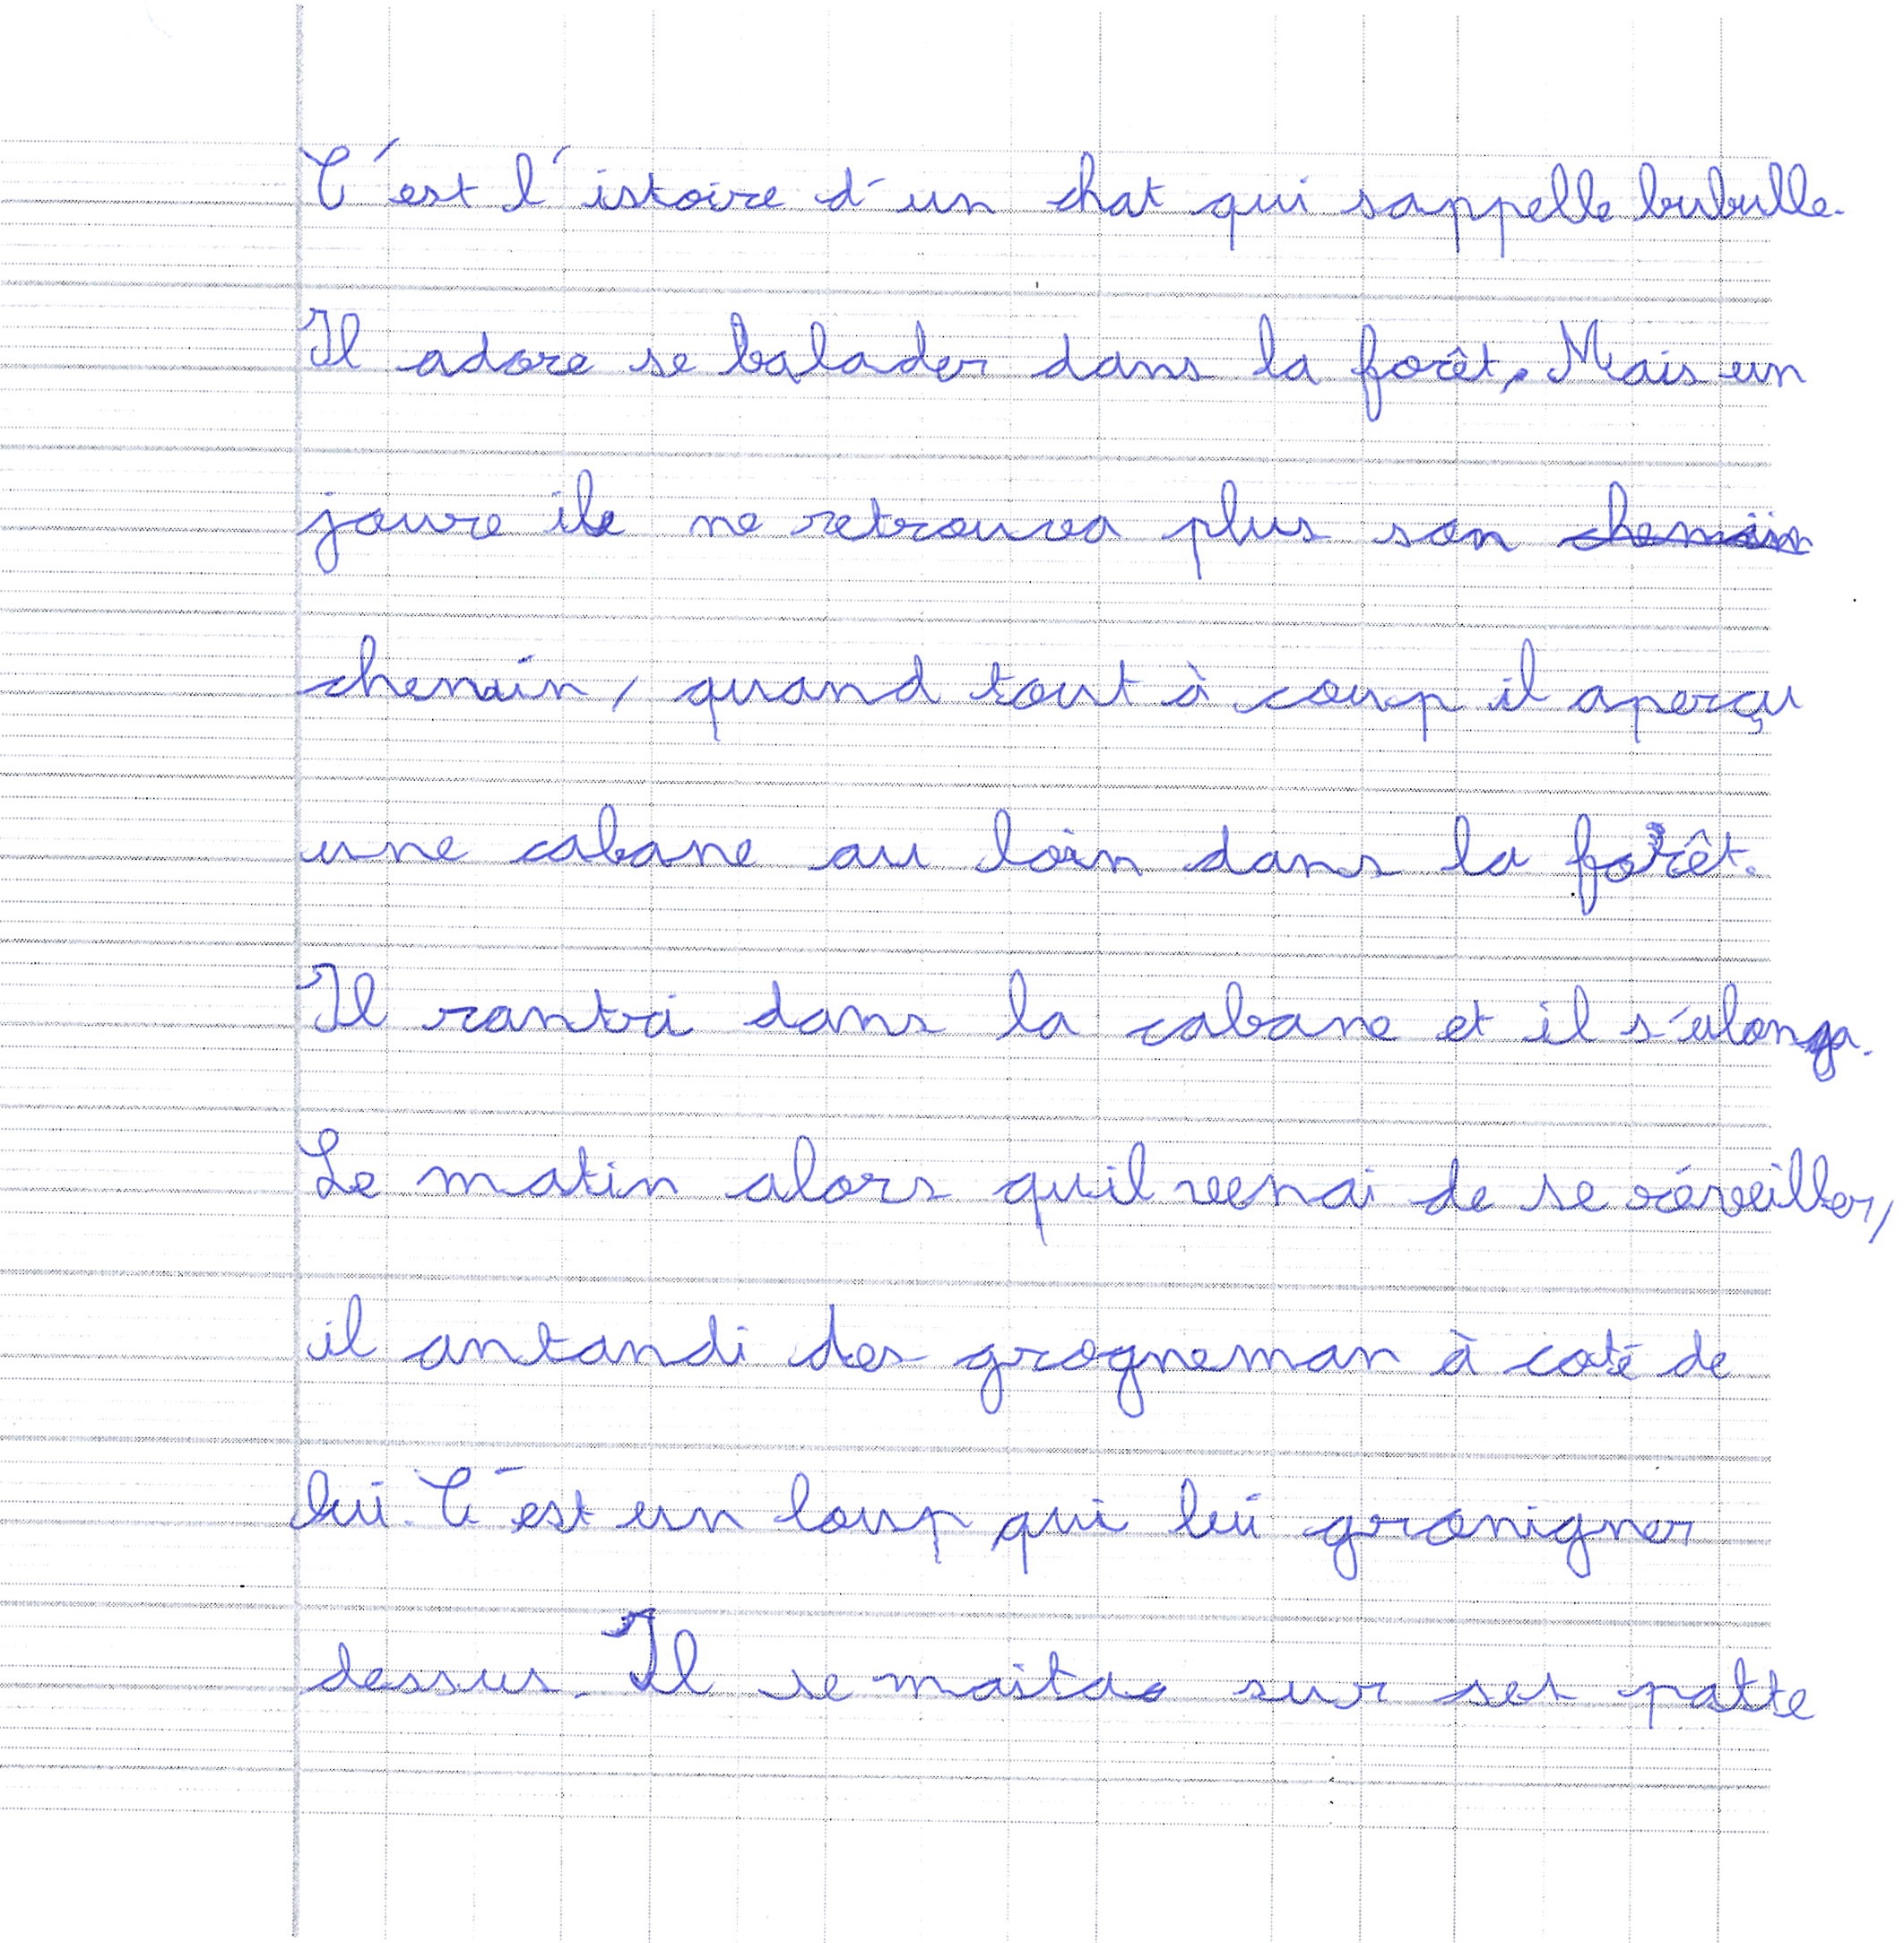 C'est l'istoire d'un chat qui sappelle bubulle.
Il adore se balader dans la forêt. Mais un
joure ile ne retrouva plus son chemain
chemin, quand tout à coup il aperçu
une cabane au loin dans la forêt.
Il rantra dans la cabane et il s'alonga.
Le matin alors quil venai de se réveiller,
il antandi des grogneman à coté de
lui. C'est un loup qui lui gronigner
dessus. Il se maita sur ses patte